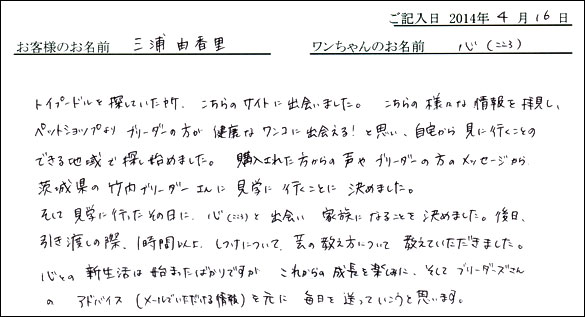 ご記入日 2014年 4 月 16 日
お客様のお名前 三浦 由香里 ワンちゃんのお名前 心(こころ)
トイプードルを探していた所、こちらのサイトに出会いました。 こちらの様々な情報を拝見し、
ペットショップより ブリーダーの方が 健康なワンコに出会える!と思い、自宅から見に行くことの
できる地域で探し始めました。 購入された方からの声やブリーダーの方のメッセージから、
茨城県の竹内ブリーダーさんに見学に行くことに決めました。
そして見学に行ったその日に、心(こころ)と出会い 家族になることを決めました。後日、
引き渡しの際、1時間以上、しつけについて、芸の教え方について 教えていただきました。
心との新生活は始まったばかりですが これからの成長を楽しみに、そしてブリーダーズさん
の アドバイス(メールでいただける情報)を元に 毎日を送っていこうと思います。